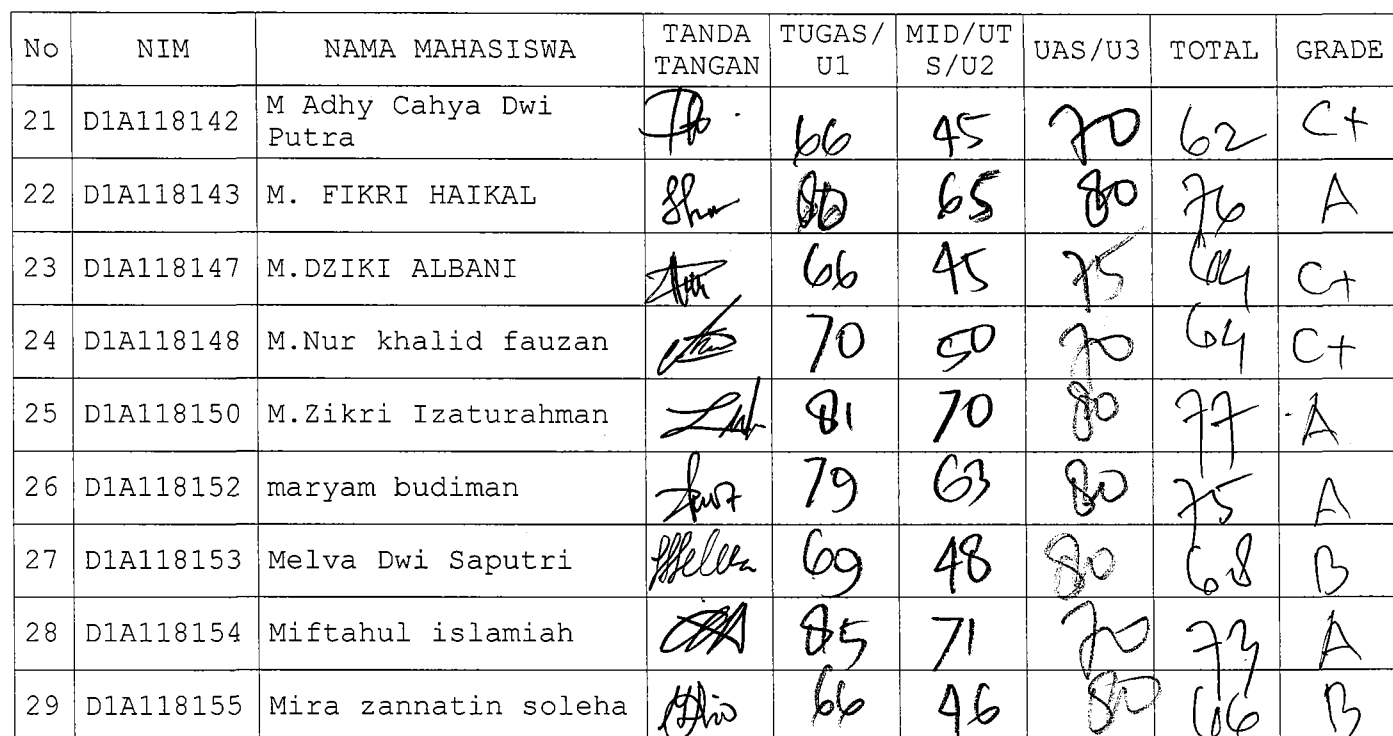 No NIM NAMA MAHASISWA TANDA TANGAN TUGAS/U1 MID/UTS/U2 UAS/U3 TOTAL GRADE
21 D1A118142 M Adhy Cahya Dwi Putra 66 45 70 62 C+
22 D1A118143 M. FIKRI HAIKAL 80 65 80 76 A
23 D1A118147 M.DZIKI ALBANI 66 45 75 64 C+
24 D1A118148 M.Nur khalid fauzan 70 50 70 64 C+
25 D1A118150 M.Zikri Izaturahman 81 70 80 77 A
26 D1A118152 maryam budiman 79 63 80 75 A
27 D1A118153 Melva Dwi Saputri 69 48 80 68 B
28 D1A118154 Miftahul islamiah 85 71 70 73 A
29 D1A118155 Mira zannatin soleha 66 46 80 66 B